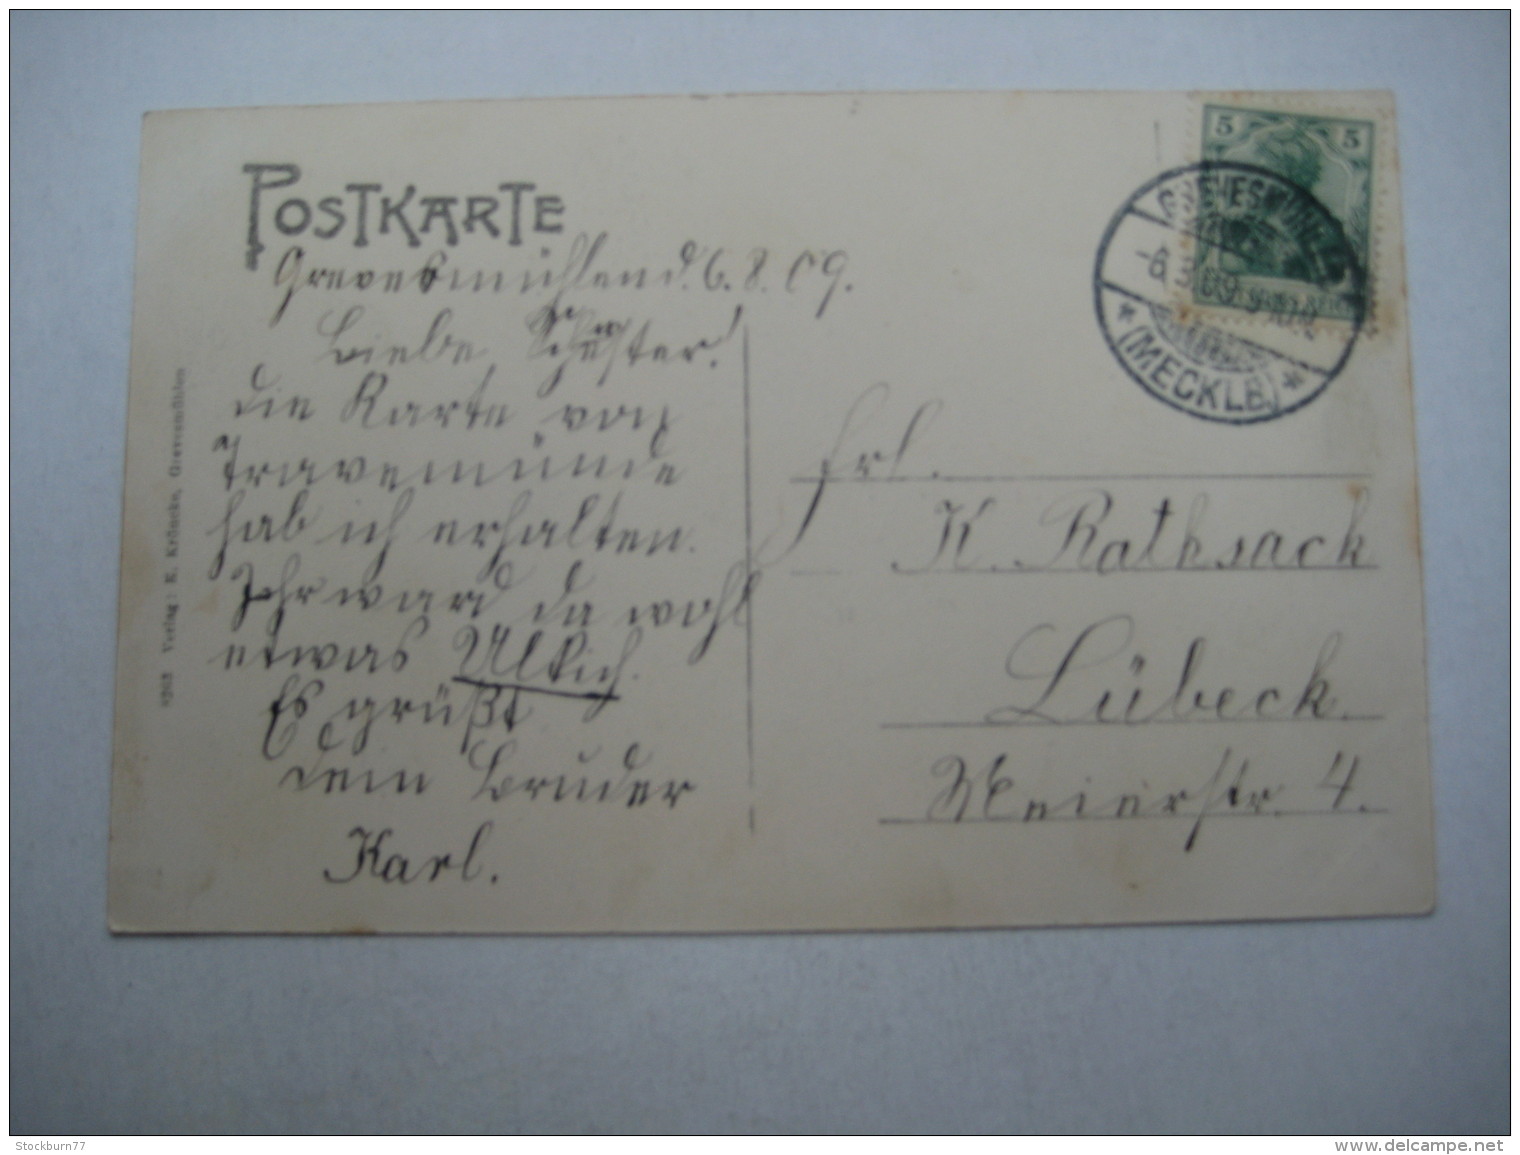 POSTKARTE
Grevesmühlen d. 6.8.09.
Liebe Schwester!
die Karte von
Travemünde
hab ich erhalten.
Ihr ward da wohl
etwas Ulkich.
Es grüßt
dein Bruder
Karl.
Verlag: K. Kröncke, Grevesmühlen
5 5
GREVESMÜHLEN
-6. 09
* (MECKLB) *
Frl.
K. Rathsack
Lübeck.
Meierstr. 4.
Stockburn77
www.delcampe.net